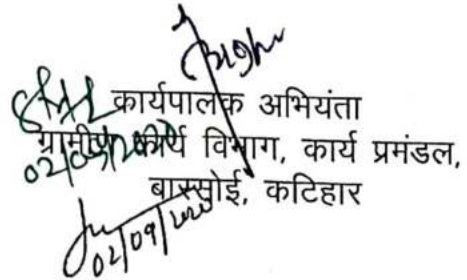 कार्यपालक अभियंता
ग्रामीण कार्य विभाग, कार्य प्रमंडल,
02/09/2020
बारसोई, कटिहार
02/09/2020